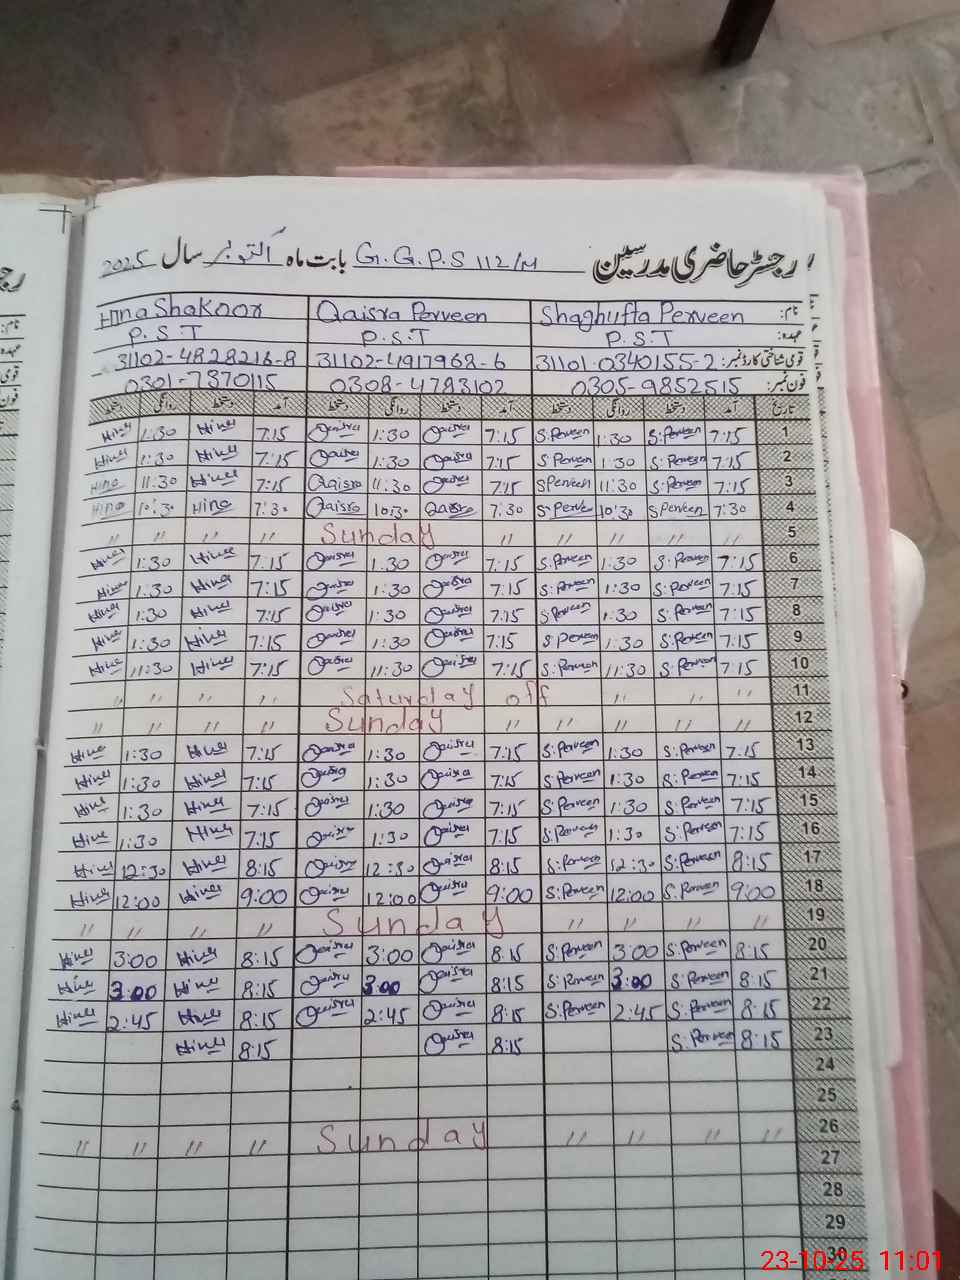 رجسٹر حاضری مدرسین G.G.P.S 112/M بابت ماہ اکتوبر سال 2025
نام: Shaghufta Perveen Qaisra Perveen Hina Shakoor
عہدہ: P.S.T P.S.T P.S.T
قومی شناختی کارڈ نمبر: 31101-0340155-2 31102-4917968-6 31102-4828216-8
فون نمبر: 0305-9852515 0308-4783102 0301-7370115
تاریخ آمد دستخط روانگی دستخط آمد دستخط روانگی دستخط آمد دستخط روانگی دستخط
1 7:15 S.Perveen 1:30 S.Perveen 7:15 Qaisra 1:30 Qaisra 7:15 Hina 1:30 Hina
2 7:15 S.Perveen 1:30 S.Perveen 7:15 Qaisra 1:30 Qaisra 7:15 Hina 1:30 Hina
3 7:15 S.Perveen 11:30 S Perveen 7:15 Qaisra 11:30 Qaisra 7:15 Hina 11:30 Hina
4 7:30 S Perveen 10:30 S.Perve 7:30 Qaisra 10:30 Qaisra 7:30 Hina 10:30 Hina
5 " " " " " Sunday " " " "
6 7:15 S.Perveen 1:30 S.Perveen 7:15 Qaisra 1:30 Qaisra 7:15 Hina 1:30 Hina
7 7:15 S.Perveen 1:30 S.Perveen 7:15 Qaisra 1:30 Qaisra 7:15 Hina 1:30 Hina
8 7:15 S.Perveen 1:30 S.Perveen 7:15 Qaisra 1:30 Qaisra 7:15 Hina 1:30 Hina
9 7:15 S.Perveen 1:30 S Perveen 7:15 Qaisra 1:30 Qaisra 7:15 Hina 1:30 Hina
10 7:15 S.Perveen 11:30 S.Perveen 7:15 Qaisra 11:30 Qaisra 7:15 Hina 11:30 Hina
11 " " " Saturday off " " " "
12 " " " " " Sunday " " " "
13 7:15 S.Perveen 1:30 S.Perveen 7:15 Qaisra 1:30 Qaisra 7:15 Hina 1:30 Hina
14 7:15 S.Perveen 1:30 S.Perveen 7:15 Qaisra 1:30 Qaisra 7:15 Hina 1:30 Hina
15 7:15 S.Perveen 1:30 S.Perveen 7:15 Qaisra 1:30 Qaisra 7:15 Hina 1:30 Hina
16 7:15 S.Perveen 1:30 S.Perveen 7:15 Qaisra 1:30 Qaisra 7:15 Hina 1:30 Hina
17 8:15 S.Perveen 12:30 S.Perveen 8:15 Qaisra 12:30 Qaisra 8:15 Hina 12:30 Hina
18 9:00 S.Perveen 12:00 S.Perveen 9:00 Qaisra 12:00 Qaisra 9:00 Hina 12:00 Hina
19 " " " " Sunday " " " "
20 8:15 S.Perveen 3:00 S.Perveen 8:15 Qaisra 3:00 Qaisra 8:15 Hina 3:00 Hina
21 8:15 S.Perveen 3:00 S.Perveen 8:15 Qaisra 3:00 Qaisra 8:15 Hina 3:00 Hina
22 8:15 S.Perveen 2:45 S.Perveen 8:15 Qaisra 2:45 Qaisra 8:15 Hina 2:45 Hina
23 8:15 S.Perveen 8:15 Qaisra 8:15 Hina
24
25
26 " " " " Sunday " " " "
27
28
29
30
23-10-25 11:01